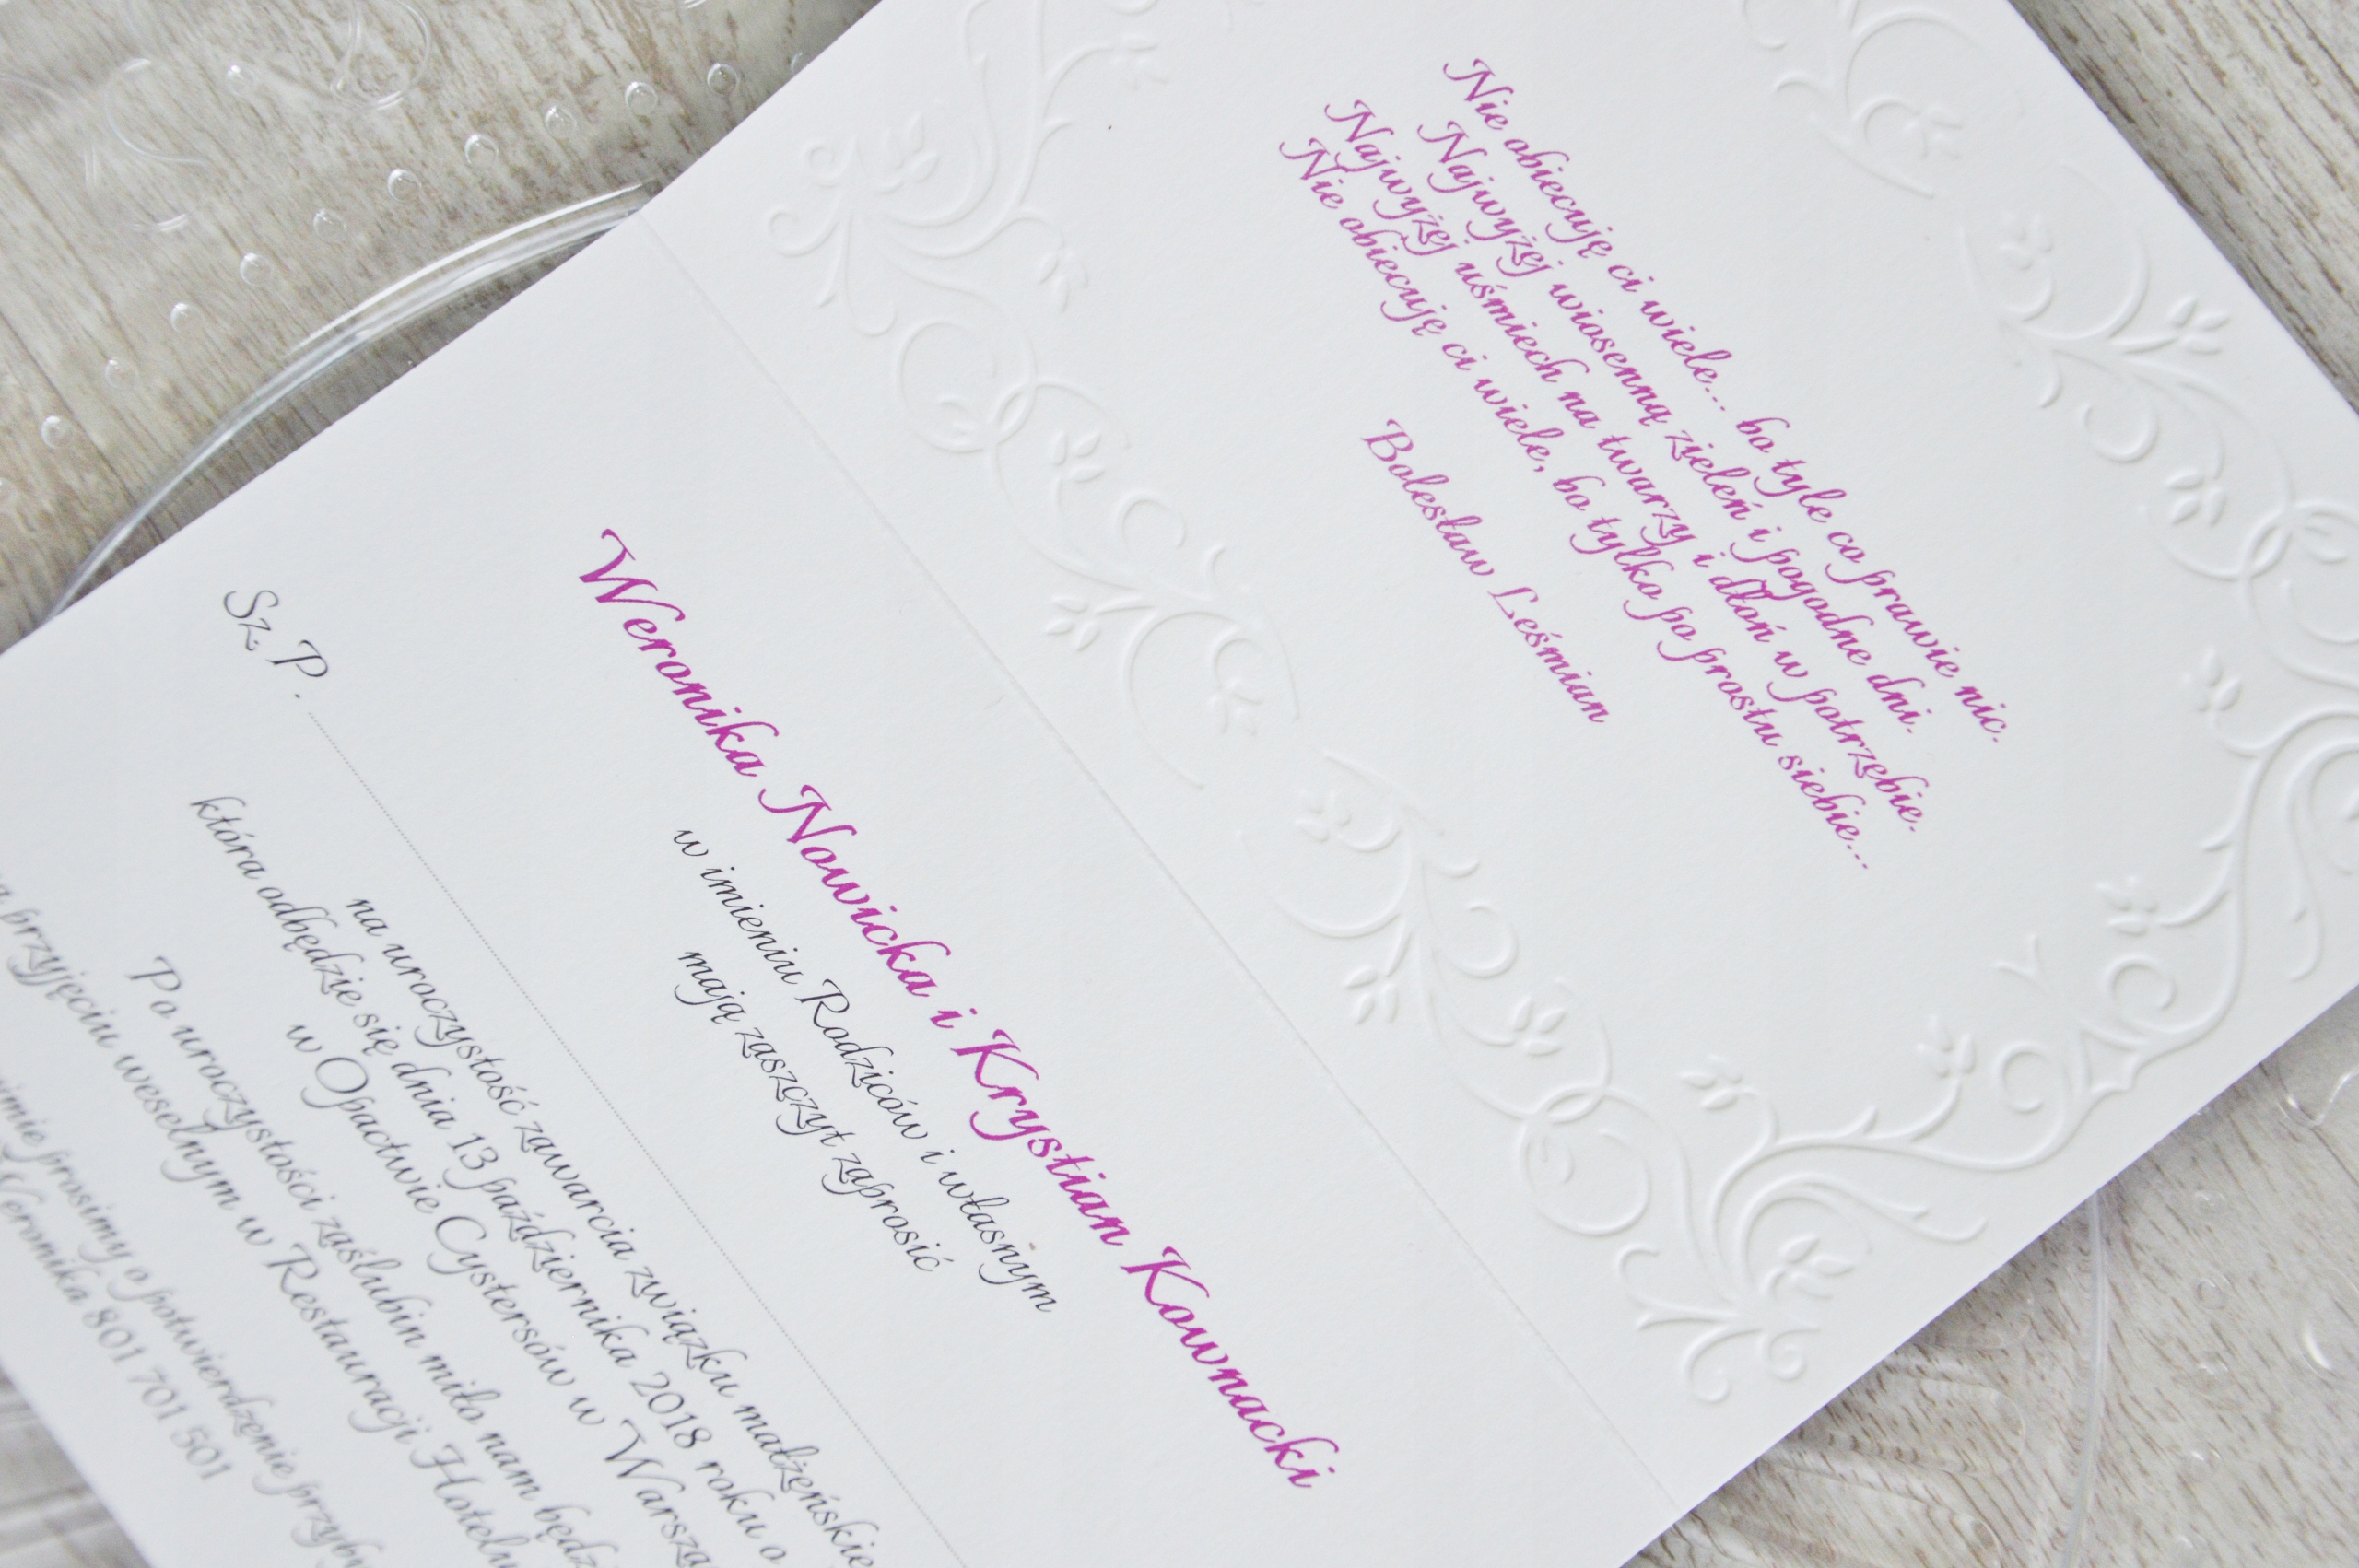 Nie obiecuję ci wiele... bo tyle co prawie nic.
Najwyżej wiosenną zieleń i pogodne dni.
Najwyżej uśmiech na twarzy i dłoń w potrzebie.
Nie obiecuję ci wiele, bo tylko po prostu siebie...
Bolesław Leśmian
Weronika Nowicka i Krystian Kownacki
w imieniu Rodziców i własnym
mają zaszczyt zaprosić
Sz. P.
na uroczystość zawarcia związku
która odbędzie się dnia 13 października 2018 roku o
w Opactwie Cystersów w
Po uroczystości zaślubin miło nam
przyjęciu weselnym w Restauracji Hotelu
prosimy o potwierdzenie
Weronika 801 701 501